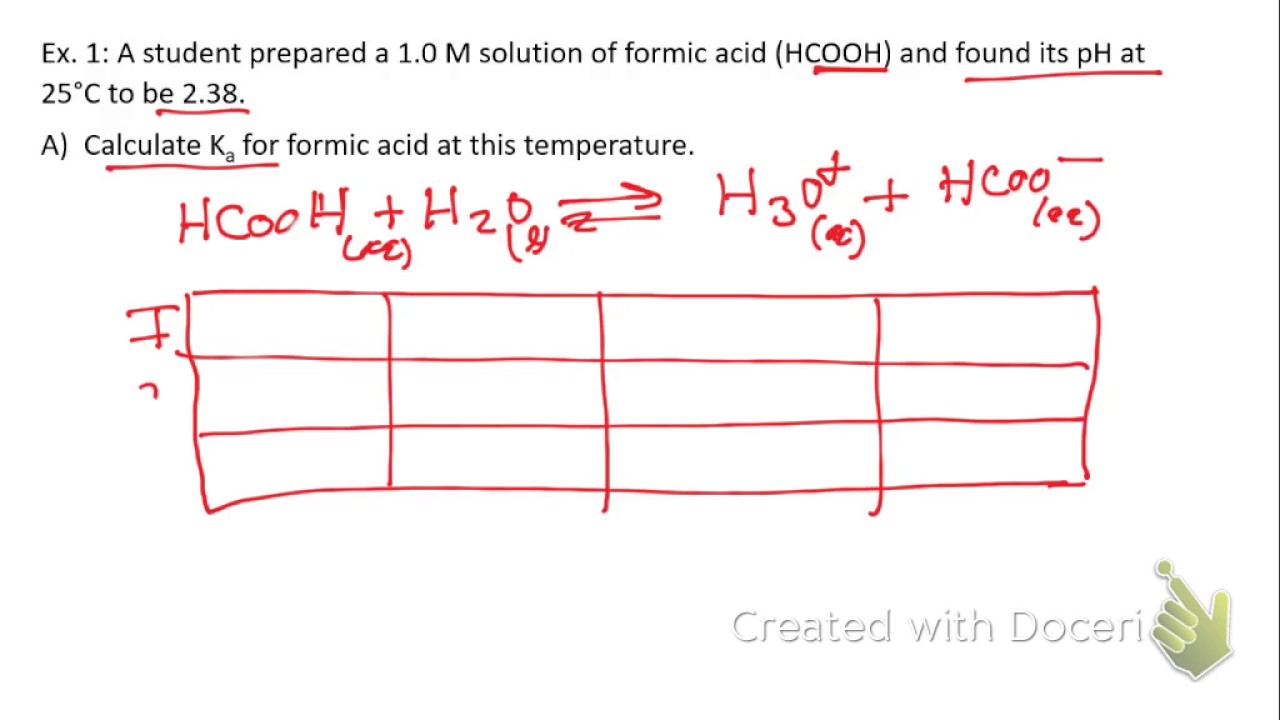 Ex. 1: A student prepared a 1.0 M solution of formic acid (HCOOH) and found its pH at
25°C to be 2.38.
A) Calculate Kₐ for formic acid at this temperature.
HCOOH(aq) + H₂O(l) ⇌ H₃O⁺(aq) + HCOO⁻(aq)
I
Created with Doceri